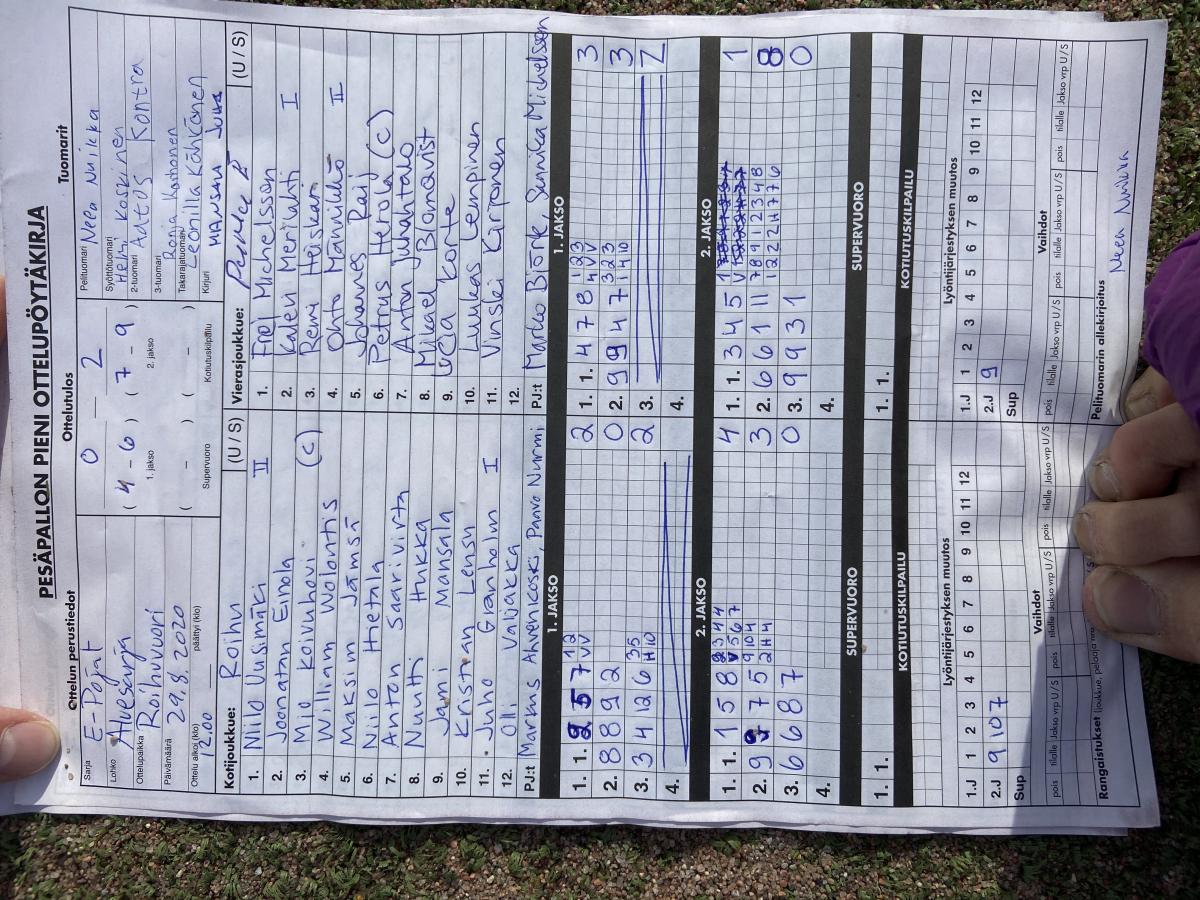 PESÄPALLON PIENI OTTELUPÖYTÄKIRJA
Ottelun perustiedot
Sarja E-Pojat
Lohko Aluesarja
Ottelupaikka Roihuvuori
Päivämäärä 29.8.2020
Ottelu alkoi (klo) 12.00 päättyi (klo)
Ottelutulos
0 — 2
(4 - 6) (7 - 9)
1. jakso 2. jakso
( - ) ( - )
Supervuoro Kotiutuskilpailu
Tuomarit
Pelituomari Neea Nuikka
Syöttötuomari Helmi Koskinen
2-tuomari Aatos Kontra
3-tuomari
Takarajatuomari Leonilla Kähkönen
Kirjuri
Kotijoukkue: Roihu (U / S)
1. Niilo Uusimäki II
2. Joonatan Einola
3. Mio Koivuhovi (c)
4. William Wolontis
5. Maksim Jämsä
6. Niilo Hietala
7. Anton Saarivirta
8. Nuutti Hukka
9. Jami Mansala
10. Kristian Lensu
11. Juho Granholm I
12. Oli Valjakka
PJ:t Markus Ahvenkoski, Paavo Nurmi
Vierasjoukkue: (U / S)
1. Frej Michelsson
2. Kalevi Merilahti I
3. Remi Heiskari
4. Ohto Mannikkö II
5. Johannes Raij
6. Petrus Herola (c)
7. Anton Juhahtalo
8. Mikael Blomqvist
9. Luca Korte
10. Luukas Lempinen
11. Vinski Karjonen
12.
PJ:t Marko Björke, Sannika Michelsson
1. JAKSO
1. 1. 2
2. 8 8 9 2 0
3. 3 4 12 6 2
4.
1. JAKSO
1. 1. 4 7 8 3
2. 9 9 4 7 3
3.
4.
2. JAKSO
1. 1. 1 5 8 4
2. 9 7 5 3
3. 6 6 8 7 0
4.
2. JAKSO
1. 1. 3 4 5 1
2. 6 6 1 11 8
3. 9 9 3 1 0
4.
SUPERVUORO
1. 1.
SUPERVUORO
1. 1.
KOTIUTUSKILPAILU
KOTIUTUSKILPAILU
Lyöntijärjestyksen muutos
1.J 1 2 3 4 5 6 7 8 9 10 11 12
2.J 9 10 7
Sup
Lyöntijärjestyksen muutos
1.J 1 2 3 4 5 6 7 8 9 10 11 12
2.J 9
Sup
Vaihdot
pois tilalle Jakso vrp U/S pois tilalle Jakso vrp U/S pois tilalle Jakso vrp U/S
Vaihdot
pois tilalle Jakso vrp U/S pois tilalle Jakso vrp U/S pois tilalle Jakso vrp U/S
Rangaistukset (joukkue, pelaaja
Pelituomarin allekirjoitus
Neea Nuikka